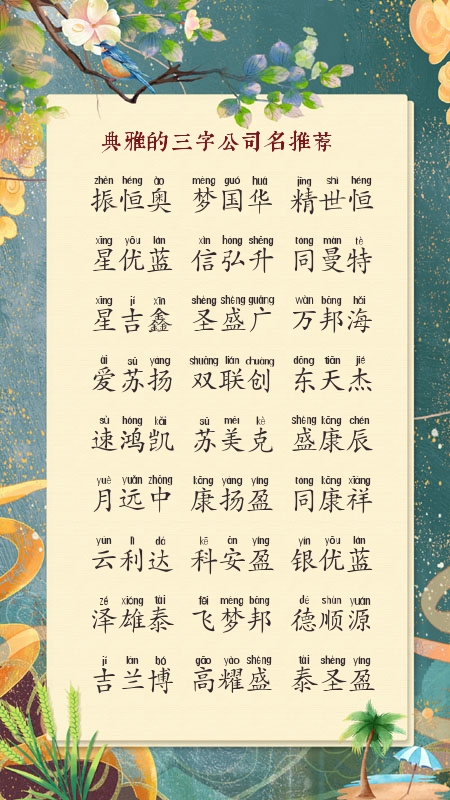 典雅的三字公司名推荐
zhèn héng ào mèng guó huá jīng shì héng
振恒奥 梦国华 精世恒
xīng yōu lán xìn hóng shēng tóng màn tè
星优蓝 信弘升 同曼特
xīng jí xīn shèng shèng guǎng wàn bāng hǎi
星吉鑫 圣盛广 万邦海
ài sū yáng shuāng lián chuàng dōng tiān jié
爱苏扬 双联创 东天杰
sù hóng kǎi sū měi kè shèng kāng chén
速鸿凯 苏美克 盛康辰
yuè yuǎn zhōng kāng yáng yíng tóng kāng xiáng
月远中 康扬盈 同康祥
yún lì dá kē ān yíng yín yōu lán
云利达 科安盈 银优蓝
zé xióng tài fēi mèng bāng dé shùn yuán
泽雄泰 飞梦邦 德顺源
jí lán bó gāo yào shèng tài shèng yíng
吉兰博 高耀盛 泰圣盈